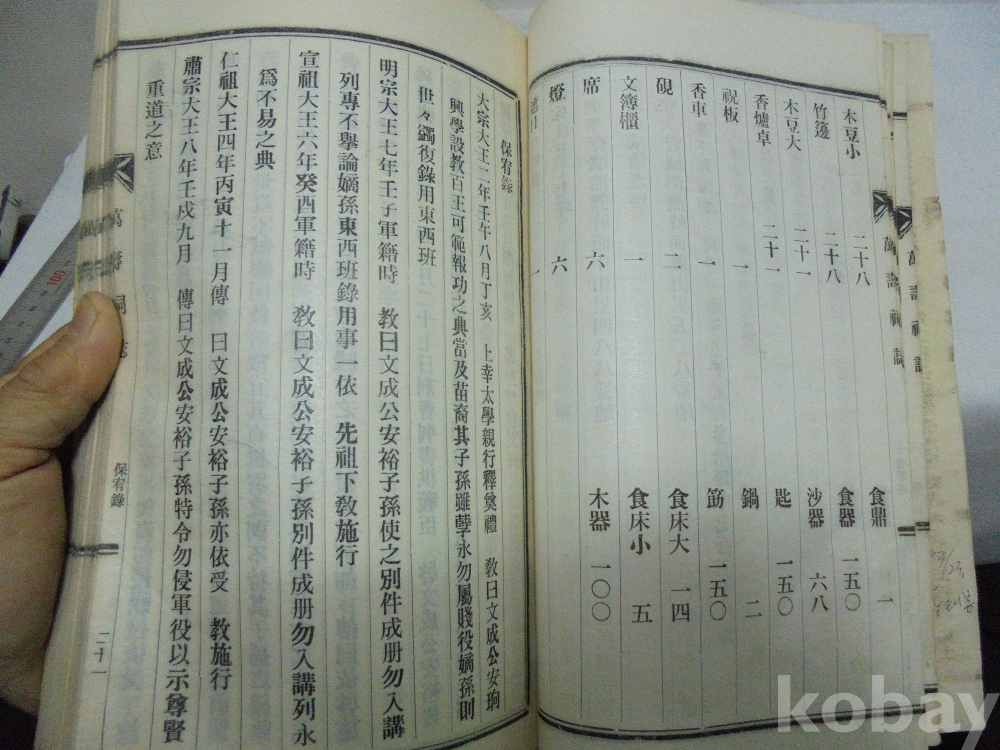 木豆小 二十八 食鼎 一
竹籩 二十八 食器 一五〇
木豆大 二十一 沙器 六八
香爐卓 二十一 匙 一五〇
祝板 一 鍋 二
香車 一 筋 一五〇
硯 二 食床大 一四
文簿櫃 一 食床小 五
席 六 木器 一〇〇
燈 六
保宥錄
大宗大王二年壬午八月丁亥 上幸太學親行釋奠禮 敎曰文成公安珦
興學設敎百王可範報功之典當及苗裔其子孫雖孽永勿屬賤役嫡孫則
世々蠲復錄用東西班
明宗大王七年壬子軍籍時 敎曰文成公安裕子孫使之別件成册勿入講
列專不擧論嫡孫東西班錄用事一依 先祖下敎施行
宣祖大王六年癸酉軍籍時 敎曰文成公安裕子孫別件成册勿入講列永
爲不易之典
仁祖大王四年丙寅十一月傳 曰文成公安裕子孫亦依受 敎施行
肅宗大王八年壬戌九月 傳曰文成公安裕子孫特令勿侵軍役以示尊賢
重道之意
萬壽祠誌
保宥錄
二十一
萬壽祠誌
萬壽祠誌
100
kobay